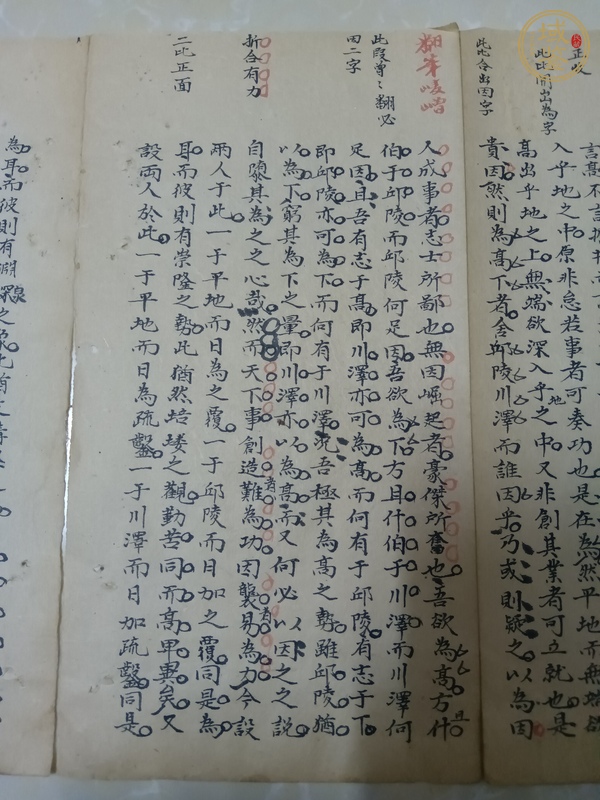 正峧
此比開出為字
此比合出因字
言高不言
入乎地之中原非怠若事者可奏功也是在為然平地而無端欲
高出乎地之上無端欲深入乎地之中又非創其業者可立就也是
貴因然則為高下者舍邱陵川澤而誰因乎乃或則疑之以為因
翻筆峻峭
此段曾翻必
因二字
折合有力
二比正面
人成事者志士所鄙也無因崛起者豪傑所奮也吾欲為高方且什
伯于邱陵而邱陵何足因吾欲為下方且什伯于川澤而川澤何
足因且吾有志于高即川澤亦可為高而何有于邱陵有志于下
即邱陵亦可為下而何有于川澤況吾極其為高之勢雖邱陵猶
以為下窮其為下之量即川澤亦以為高而又何必以因之之說
自隳其為之之心哉然而天下事創造者難為功因襲者易為力今設
兩人于此一于平地而日為之覆一于邱陵而日加之覆同是為
耳而彼則有崇隆之勢此猶然培塿之觀勤苦同而高卑異矣又
設兩人於此一于平地而日為疏鑿一于川澤而日加疏鑿同是
為耳而彼則有淵